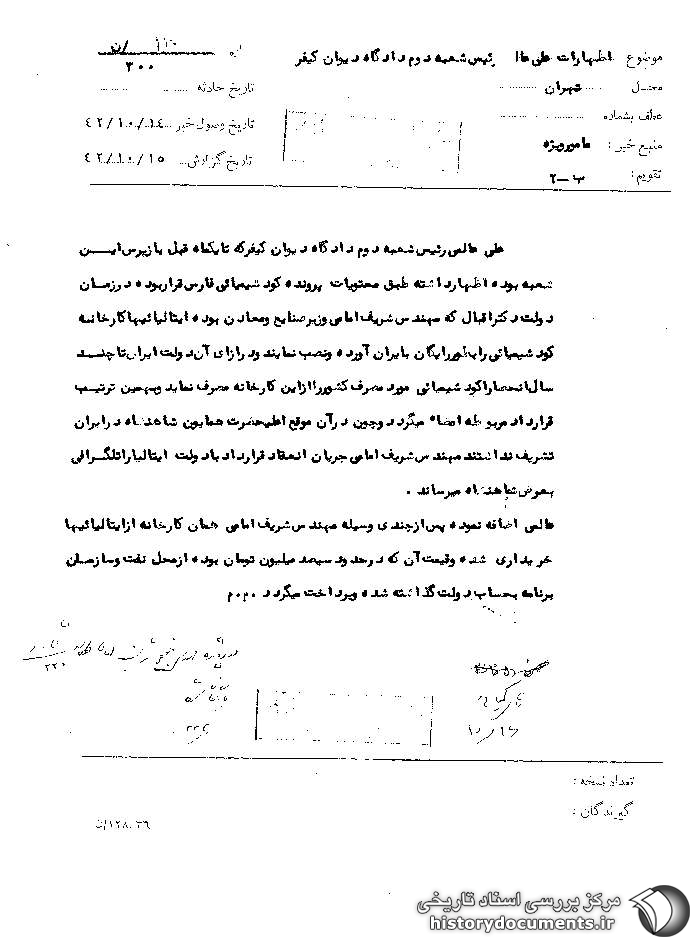 موضوع اظهارات علی عالمی رئیس شعبه دوم دادگاه دیوان کیفر
محل تهران
عطف بشماره
منبع خبر : مامور ویژه
تقویم : ب-۲
۳۰۰
تاریخ حادثه
تاریخ وصول خبر ۴۲/۱۰/۱۴
تاریخ گزارش ۴۲/۱۰/۱۵
علی عالمی رئیس شعبه دوم دادگاه دیوان کیفر که تا یکماه قبل بازپرس ایـــن
شعبه بوده اظهار داشته طبق محتویات پرونده کود شیمیائی فارس قرار بوده در زمان
دولت دکتر اقبال که مهندس شریف امامی وزیر صنایع و معادن بوده ایتالیائیها کارخانه
کود شیمیائی را بطور رایگان بایران آورده ونصب نمایند ودر ازای آن دولت ایران تا چنـــد
سال انحصارا کود شیمیائی مورد مصرف کشور را از این کارخانه مصرف نماید وبهمین ترتیب
قرارداد مربوطه امضاء میگردد وچون در آن موقع اعلیحضرت همایون شاهنشاه در ایران
تشریف نداشتند مهندس شریف امامی جریان انعقاد قرارداد با دولت ایتالیا را تلگرافی
بعرض شاهنشاه میرساند .
عالمی اضافه نموده پس از چندی وسیله مهندس شریف امامی همان کارخانه از ایتالیائیها
خریداری شده وقیمت آن که در حدود سیصد میلیون تومان بوده از محل نفت وسازمان
برنامه بحساب دولت گذاشته شده وپرداخت میگردد .م.م
۱۰/۱۶
تعداد نسخه :
گیرندگان :
مرکز بررسی اسناد تاریخی
historydocuments.ir